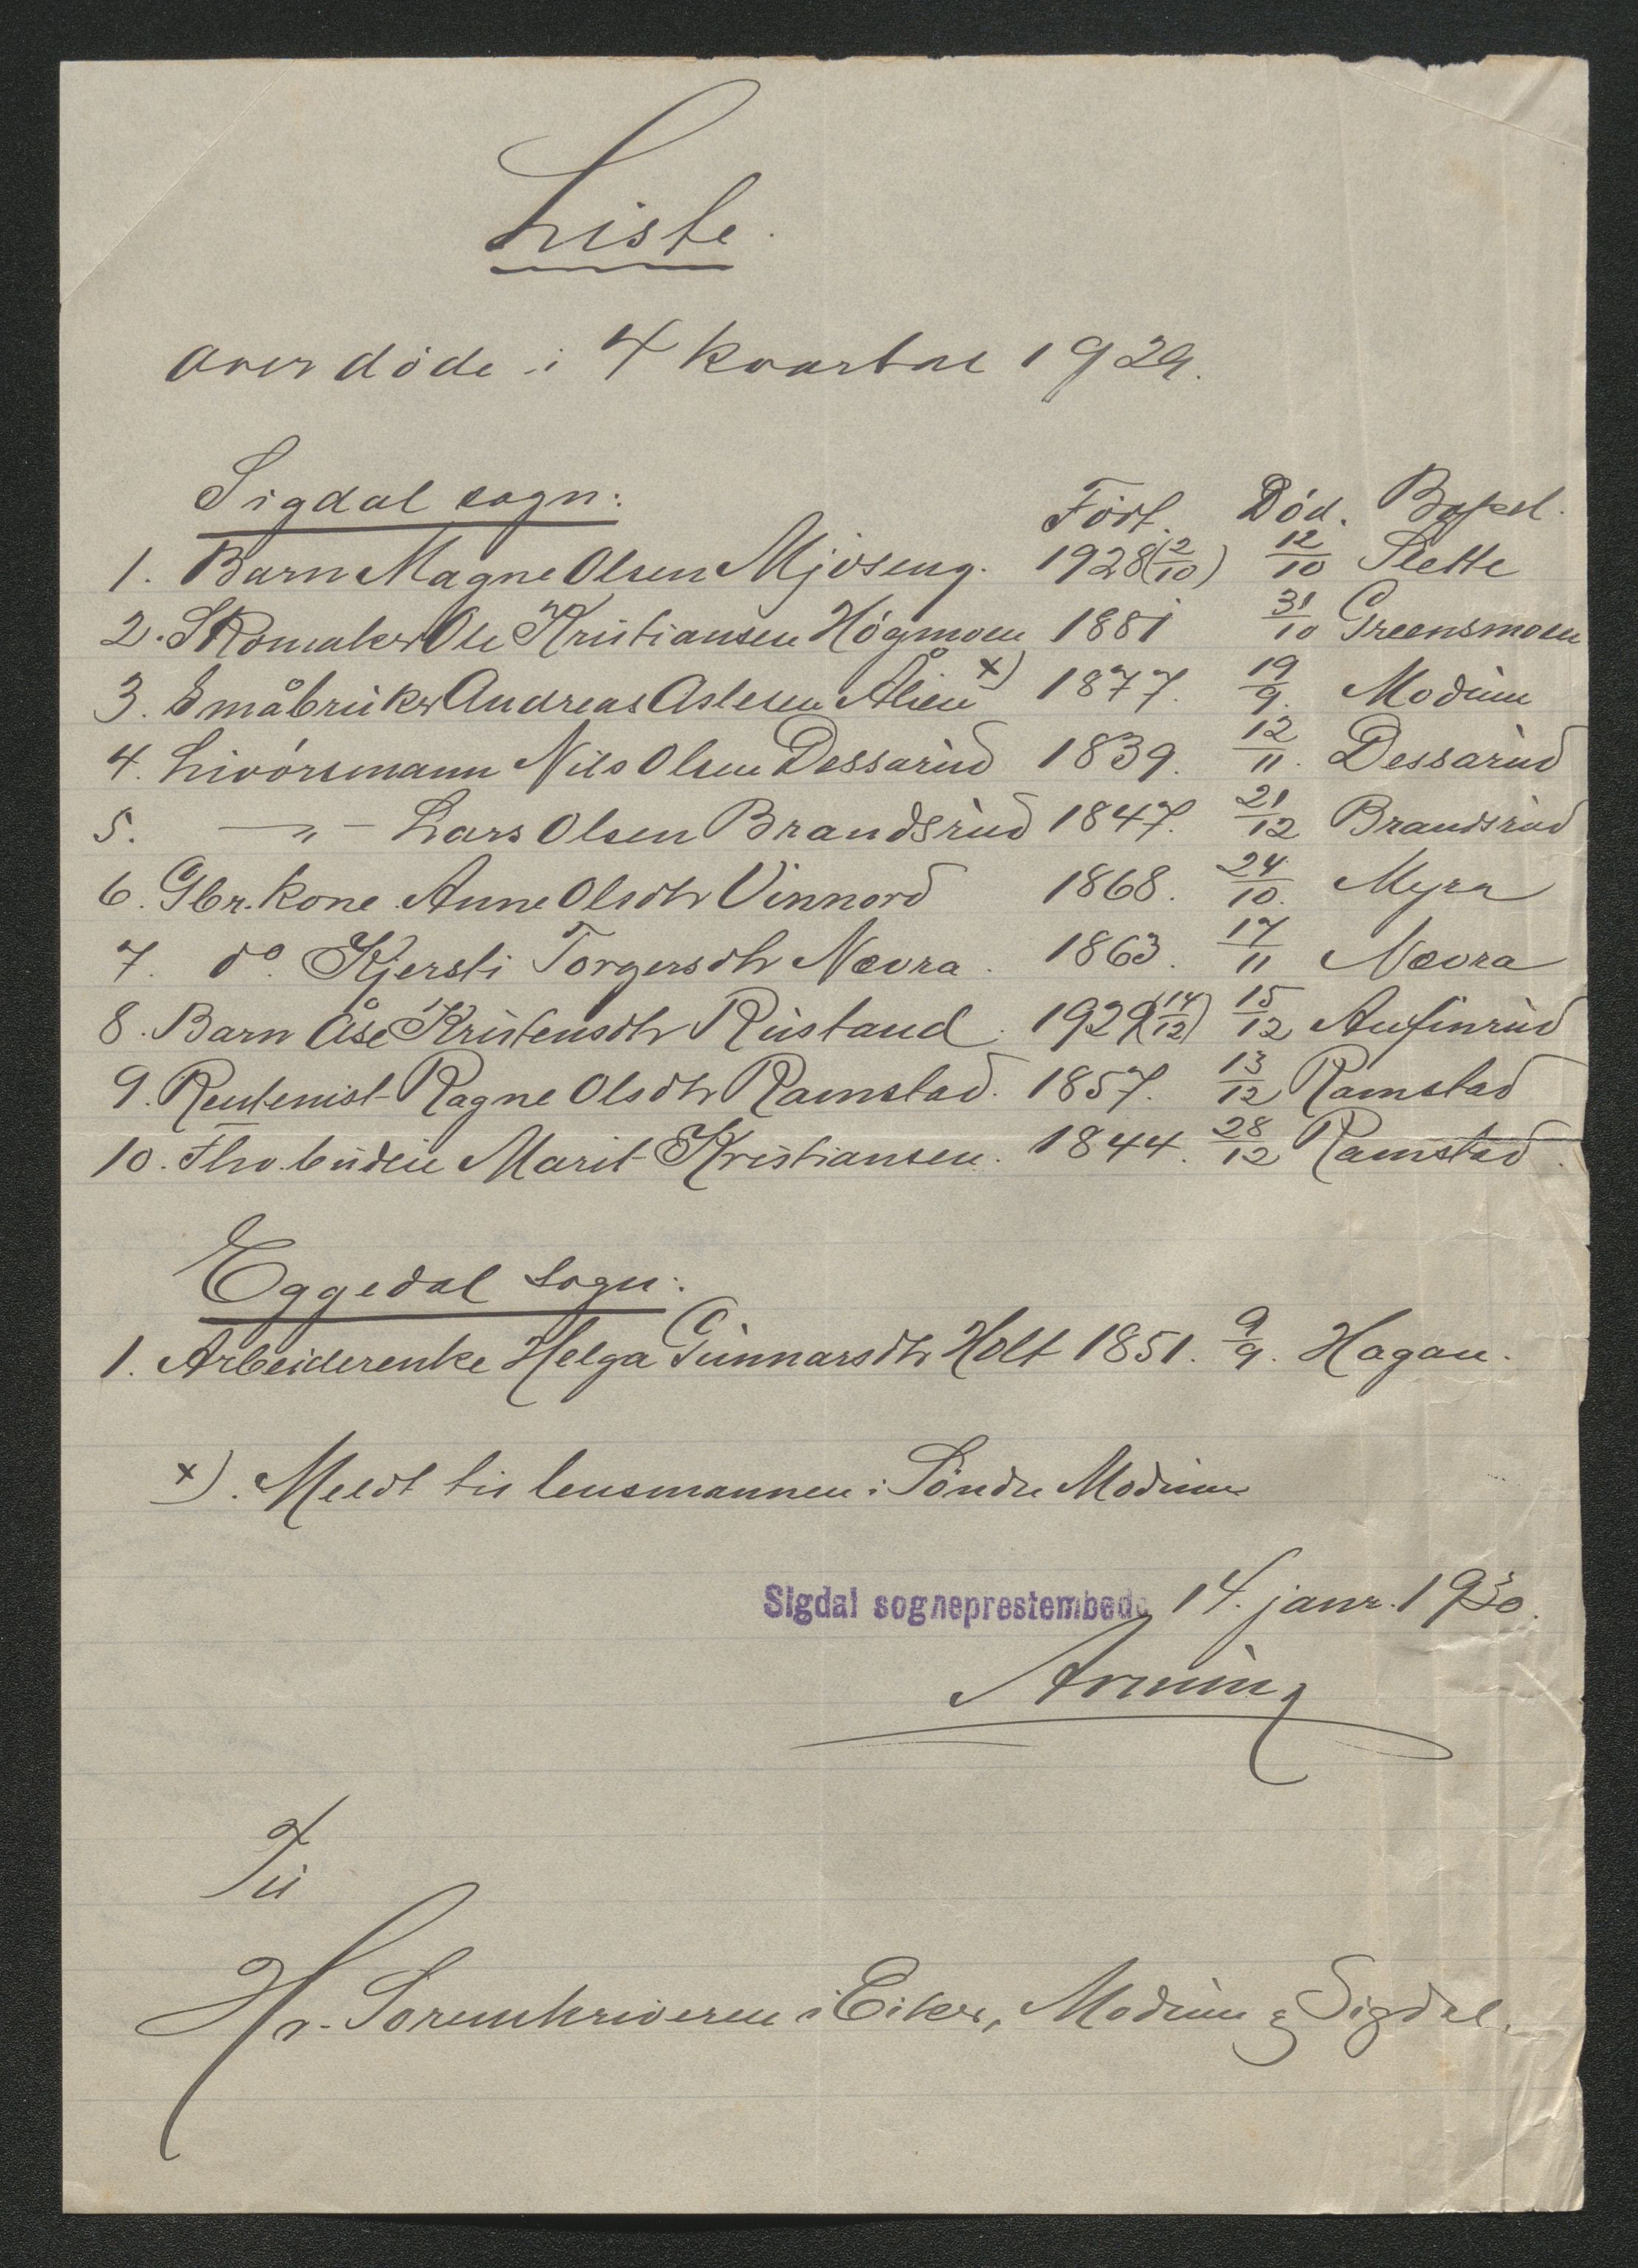 Liste.
over døde i 4 kvartal 1929.
Sigdal sogn: Født. Død. Bopæl.
1. Barn Magne Olsen Mjøseng. 1928 (2/10) 12/10 Slette
2. Skomaker Ole Kristiansen Høgmoen 1881 31/10 Greensmoen
3. Småbruker Andreas Aslesen Ålien x) 1877. 19/9. Modum
4. Livørsmann Nils Olsen Dessarud 1839. 12/11. Dessarud
5. —„— Lars Olsen Brandsrud 1847. 21/12 Brandsrud
6. Gbr.kone Anne Olsdtr Vinnord 1868. 24/10. Myra
7. do. Kjersti Torgersdtr Nævra. 1863. 17/11 Nævra
8. Barn Åse Kristensdtr Rustand. 1929 (14/12) 15/12 Anfinrud
9. Rentenist Ragne Olsdtr Ramstad. 1857. 13/12 Ramstad
10. Fhv. budeie Marit Kristiansen. 1844. 28/12 Ramstad.
Eggedal sogn:
1. Arbeiderenke Helga Gunnarsdtr Holt 1851. 9/9. Hagan.
x). Meldt til lensmannen i Søndre Modum
Sigdal sogneprestembede 14. janr. 1930.
Til
Hr. Sorenskriveren i Eiker, Modum & Sigdal.